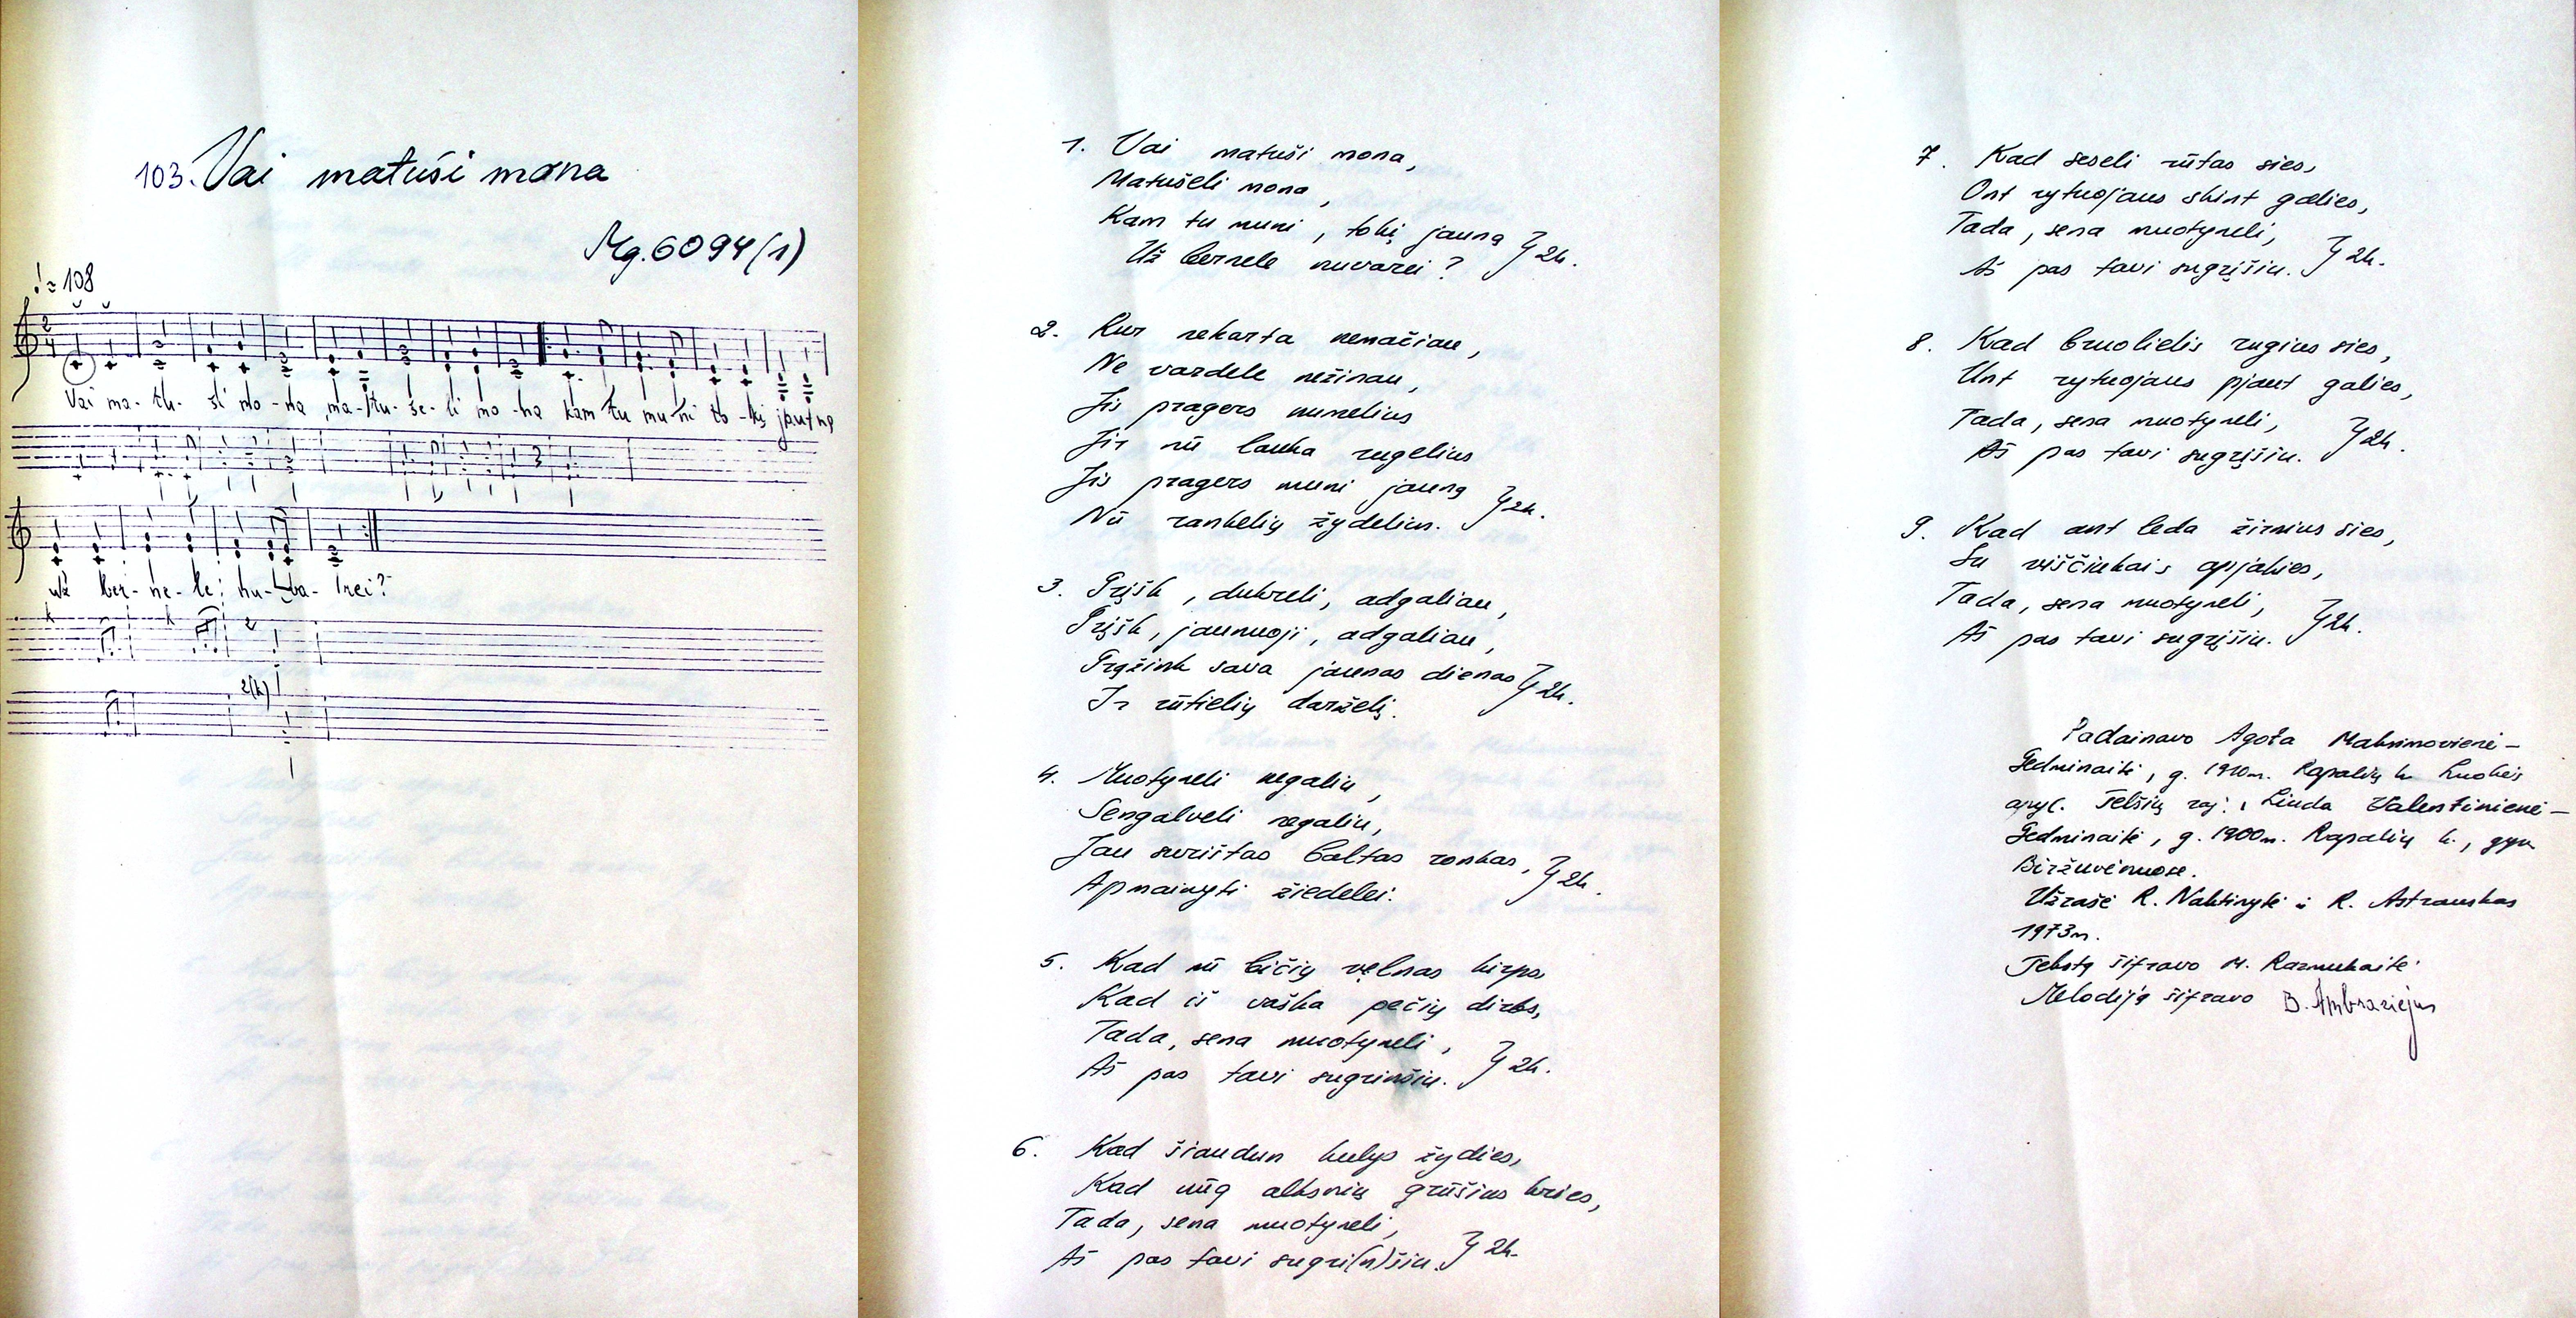 103. Vai matuši mona
Mg. 6094 (1)
♩ = 108
Vai ma- tu- ši mo- na ma- tu- še- li mo- na kam tu mu- ni to- kį jau- ną
už ber- ne- le nu- va- rei?
1. Vai matuši mona,
Matušeli mona,
Kam tu muni, tokį jauną } 2k.
Už bernele nuvarei?
2. Kur nekarta nemačiau,
Ne vardele nežinau,
Jis pragers numelius
Jir nū lauka rugelius
Jis pragers muni jauną } 2k.
Nū rankelių žydelius.
3. Grįšk, dukreli, adgaliau,
Grįšk, jaunuoji, adgaliau,
Grąžink sava jaunas dienas } 2k.
Ir rūtielių darželį.
4. Muotyneli negaliu,
Sengalveli negaliu,
Jau surištas baltas ronkas, } 2k.
Apmainyti žiedelei.
5. Kad nū bičių vęlnas kirps
Kad iš vaška pečių dirbs,
Tada, sena muotyneli, } 2k.
Aš pas tavi sugrinšiu.
6. Kad šiaudun kulys žydies,
Kad nūg alksnių grūšius kries,
Tada, sena muotyneli, } 2k.
Aš pas tavi sugri(n)šiu.
7. Kad seseli rūtas sies,
Ont rytuojaus skint galies,
Tada, sena muotyneli, } 2k.
Aš pas tavi sugrįšiu.
8. Kad bruolielis rugius sies,
Unt rytuojaus pjaut galies,
Tada, sena muotyneli, } 2k.
Aš pas tavi sugrįšiu.
9. Kad ant leda žirnius sies,
Su viščiukais apjakies,
Tada, sena muotyneli, } 2k.
Aš pas tavi sugrįšiu.
Padainavo Agota Maksimovienė-
Gedminaitė, g. 1910m. Rapalių k. Luokės
apyl. Telšių raj., Liuda Valentinienė-
Gedminaitė, g. 1900m. Rapalių k., gyv.
Biržuvėnuose.
Užrašė R. Nakтinytė ir R. Astrauskas
1973m.
Tekstą šifravo M. Razmukaitė
Melodiją šifravo B. Ambraziejus